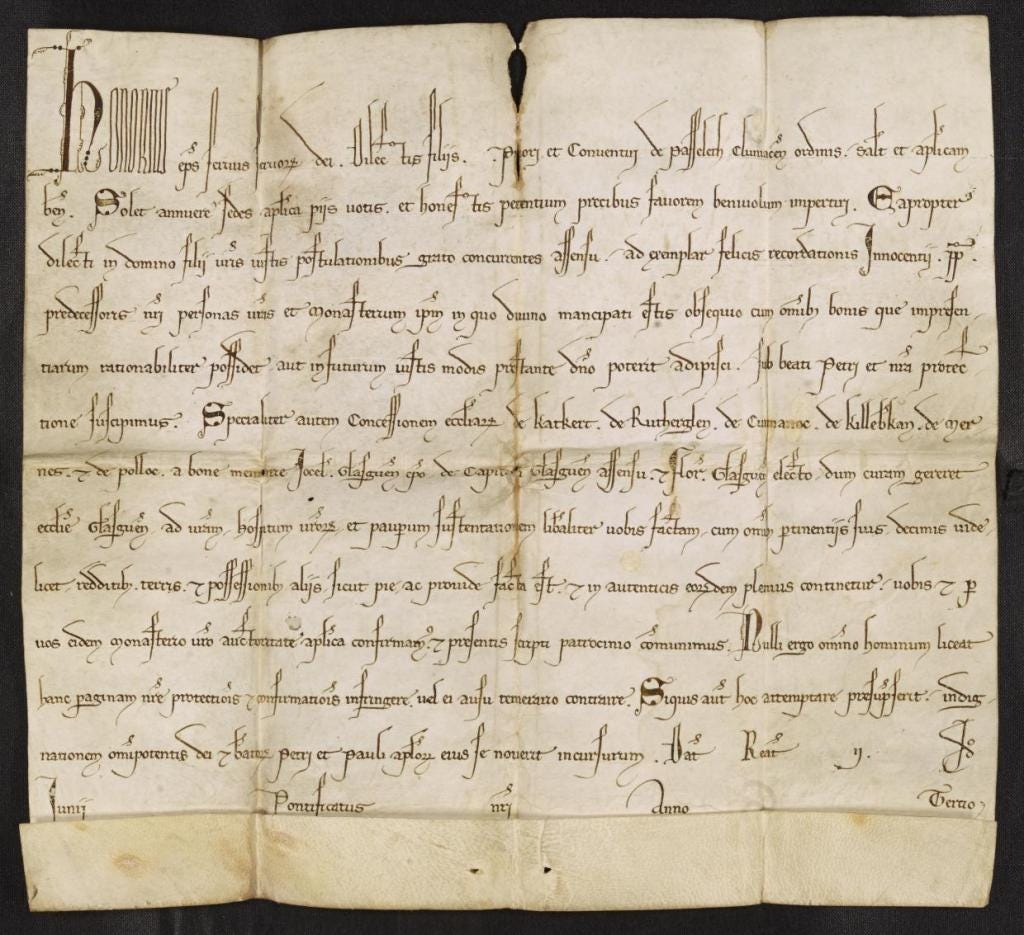 Honorius ep̄s seruus seruoꝝ dei. Dilectis filijs. Priori et Conuentui de Passeleth Cluniaceñ ordinis. salt̄ et apl̄icam
beñ. Solet annuere sedes apl̄ica pijs uotis. et honestis petentium precibus fauorem beniuolum impertiri. Eapropter
dilecti in domino filij ur̄is iustis postulationibus grato concurrentes assensu. ad exemplar felicis recordationis Innocentii. pp̄.
predecessoris nr̄i personas ur̄as et monasterium ip̄m in quo diuino mancipati estis obsequio cum omīb; bonis que inpresen
tiarum rationabiliter possidet aut infuturum iustis modis prestante dn̄o poterit adipisci. sub beati Petri et nr̄a protec
tione suscipimus. Specialiter autem Concessionem eccl̄iaꝝ de katkert. de Rutherglen. de de killebkan. de Mer
nes. ⁊ de polloc. a bone memorie Jocel̄. Glasgueñ ep̄o de Capituli Glasgueñ assensu. ⁊ Flor̄. Glasgueñ electo. dum curam gereret
eccl̄ie Glasgueñ. ad ur̄am. hospitum ur̄oꝝ et pauꝑum sustentationem lib̄aliter uobis factam. cum om̄ib; ꝑtinentijs suis. decimis uide
licet. redditib;. terris. ⁊ possessionib; alijs sicut pie. ac prouide facta est. ⁊ in autenticis eoꝝdem plenius continetur. uobis ⁊ ꝑ
uos eidem monasterio ur̄o auctoritate apl̄ica confirmam̄. ⁊ presentis scripti patrocinio com̄unimus. Nulli ergo om̄ino hominum liceat
hanc paginam nr̄e protectiōis ⁊ confirmatiōis infringere. uel ei ausu temerario contraire. Siquis aut̄ hoc attemptare presūpserit. indig
nationem om̄ipotentis dei ⁊ beatoꝝ Petri et Pauli apl̄oꝝ eius se nouerit incursurum. Dat̄ Reat̄ ij. Id̄
Iunii Pontificatus nr̄i Anno Tertio